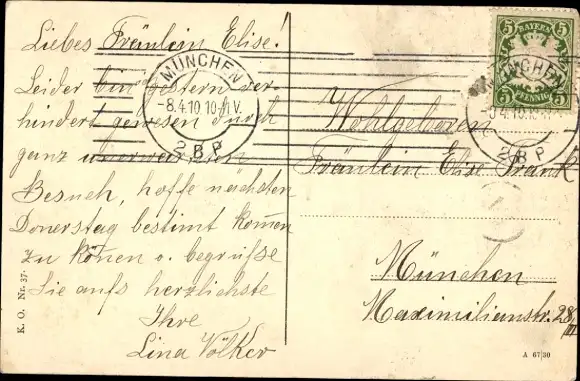 Liebes Fräulein Elise!
Leider bin gestern ver-
hindert gewesen durch
ganz unerwarteten
Besuch, hoffe nächsten
Donerstag bestimt komen
zu könen u. begrüsse
Sie aufs herzlichste
Ihre
Lina Völker
K. O. Nr. 37.
MÜNCHEN
-8.4.10. 10-11 V.
2 B P
5 BAYERN 5
5 PFENNIG 5
MÜNCHEN
2 B P
Wohlgeboren
Fräulein Elise Frank
München
Maximilianstr. 28/III
A 6730